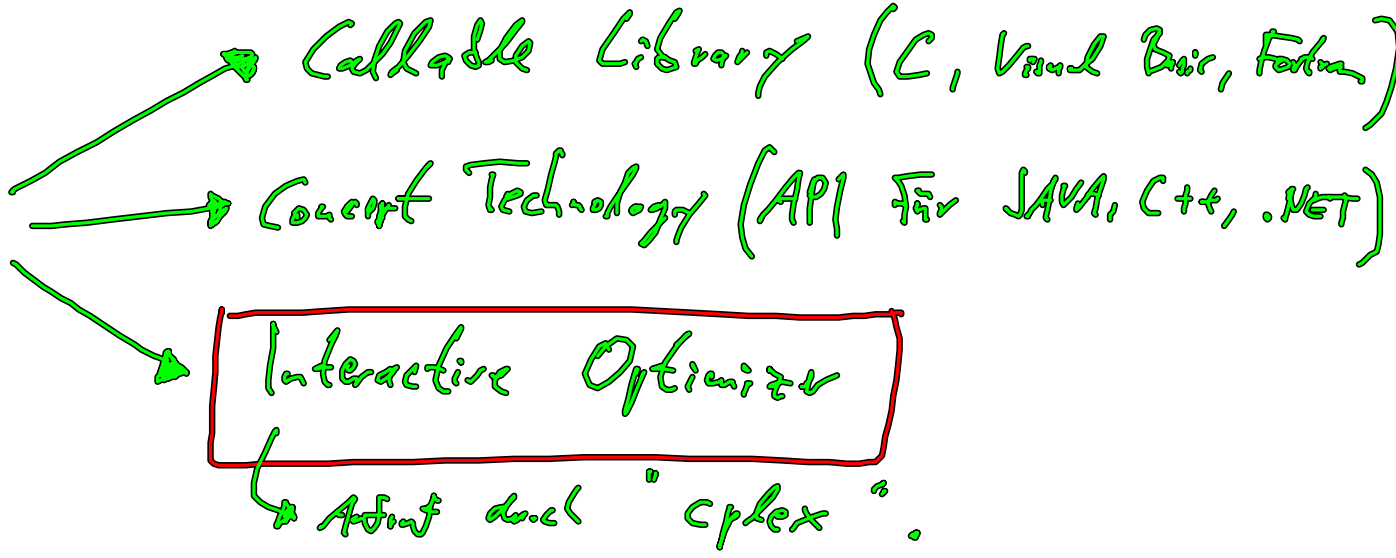 Callable Library (C, Visual Basic, Fortran)
Concept Technology (API für JAVA, C++, .NET)
Interactive Optimizer
Aufruf durch "cplex".